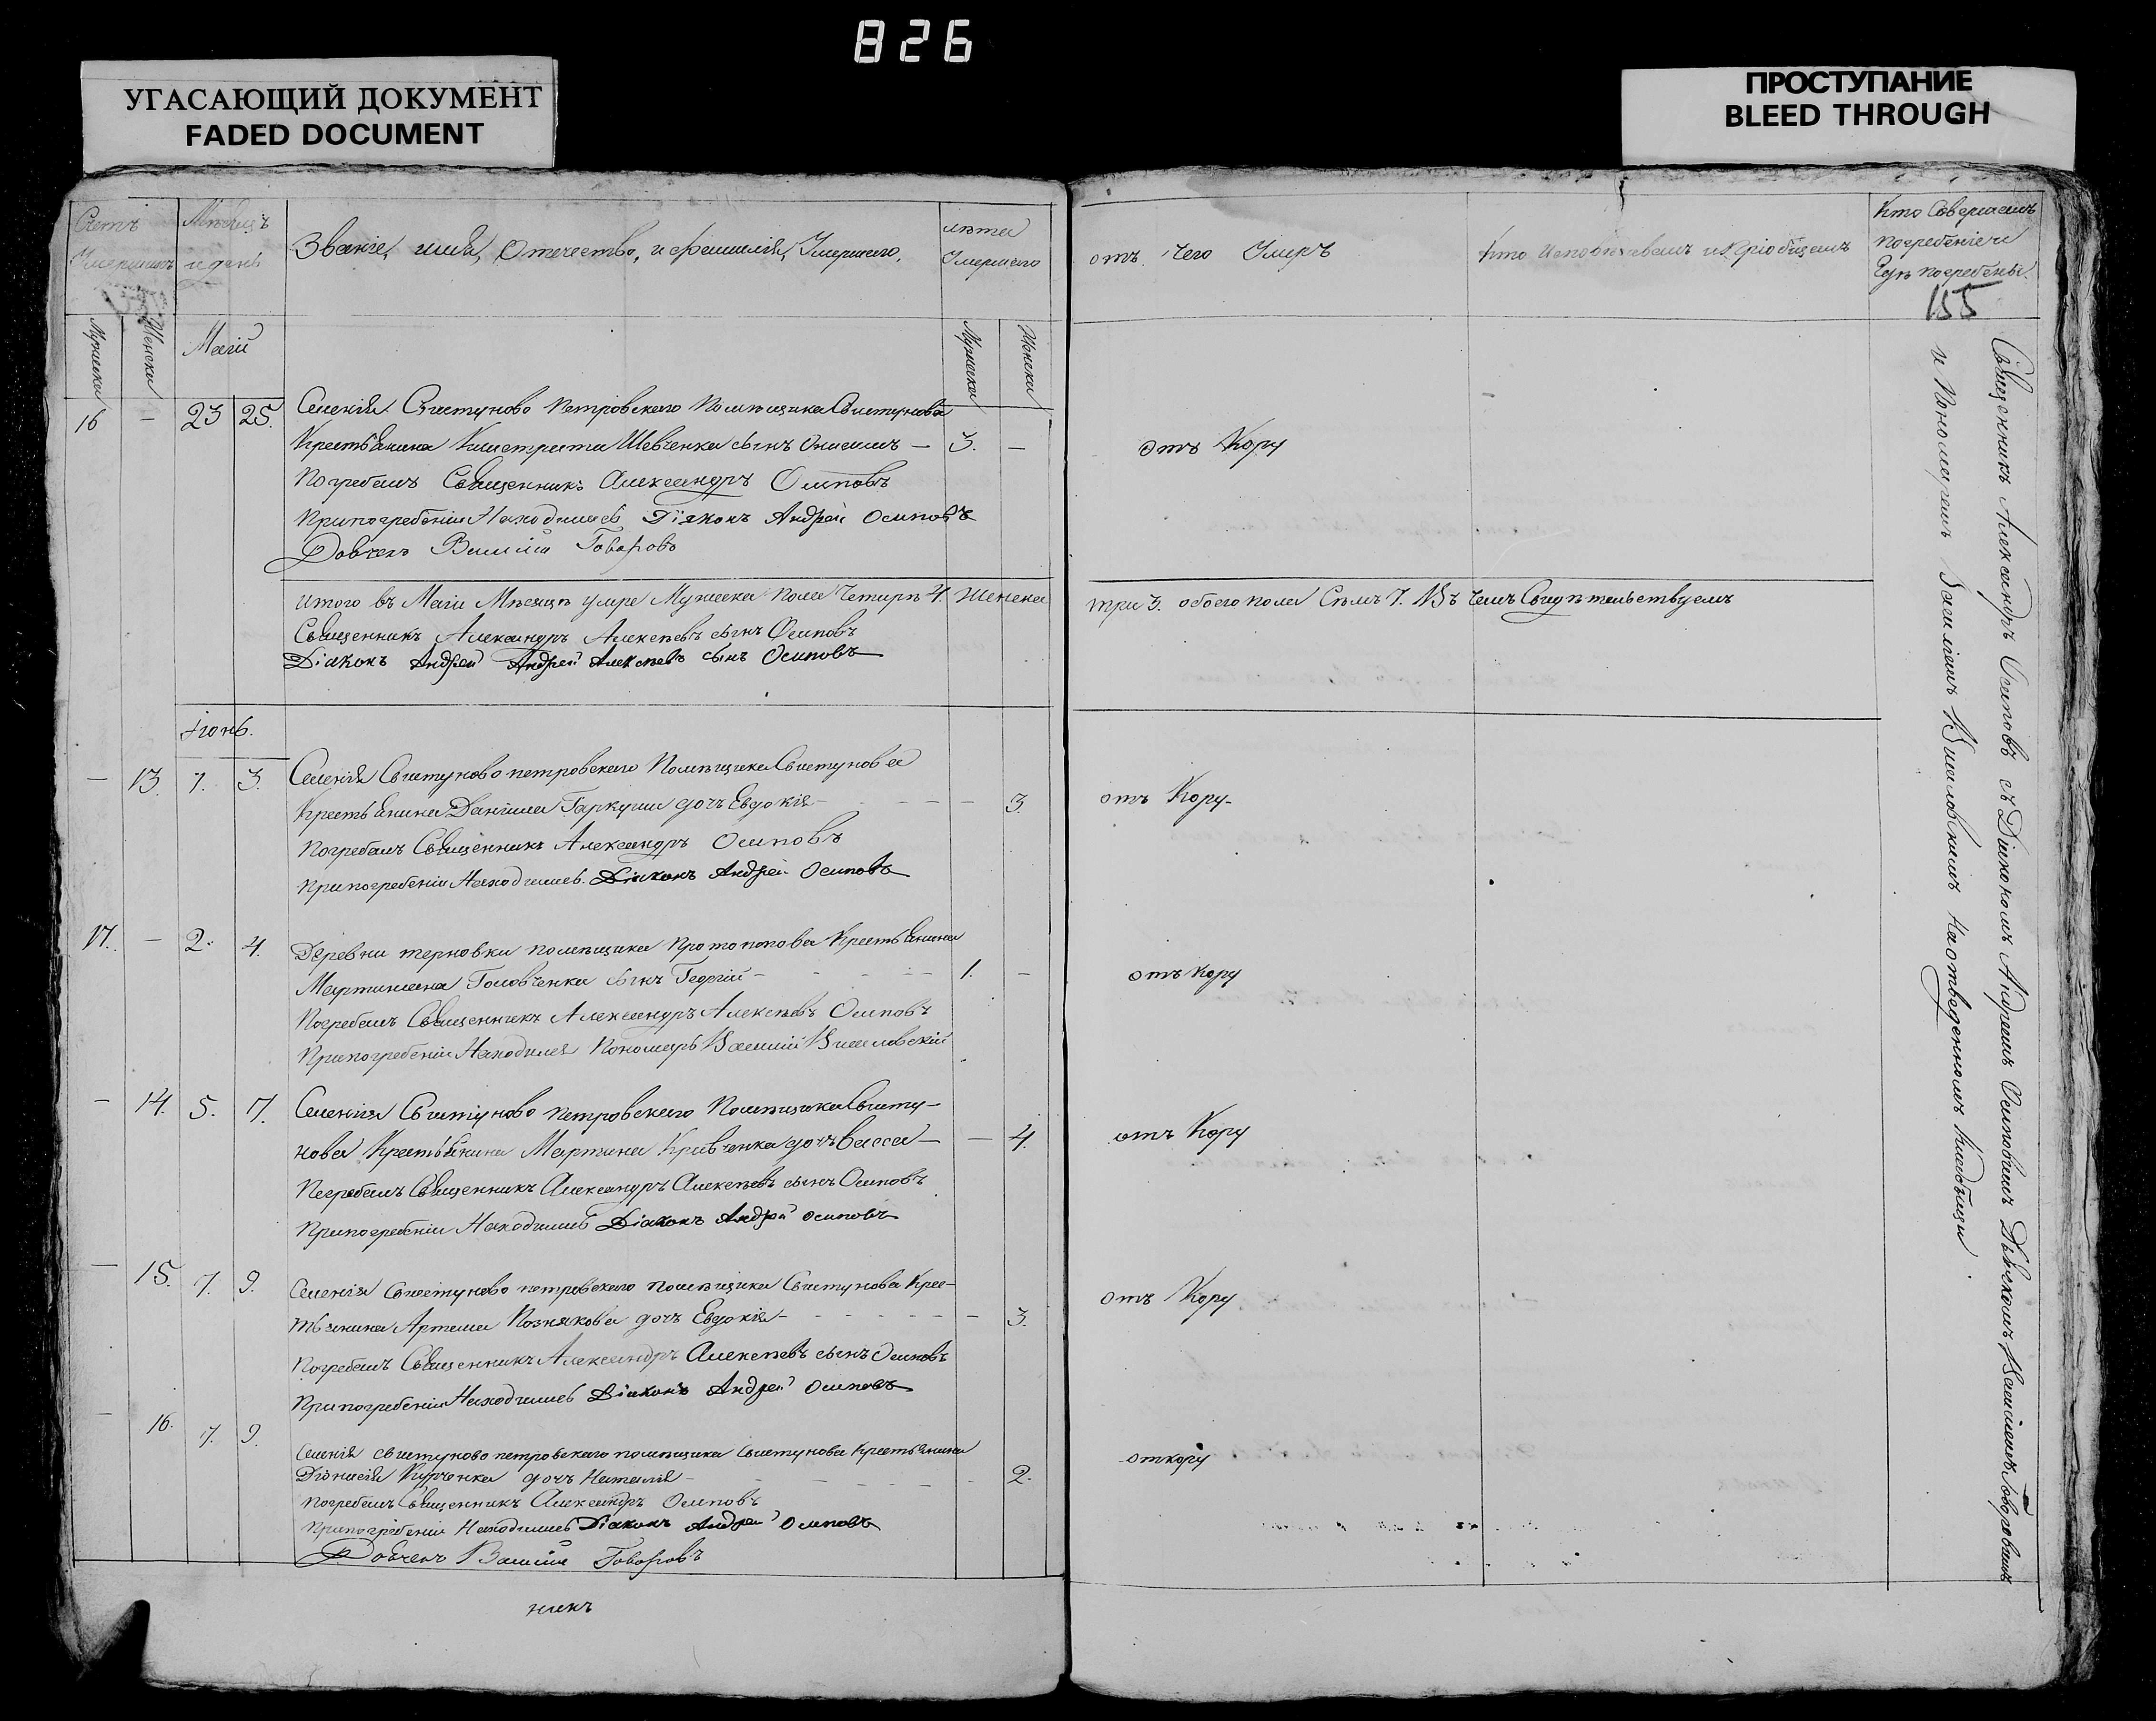 826
УГАСАЮЩИЙ ДОКУМЕНТ
FADED DOCUMENT
ПРОСТУПАНИЕ
BLEED THROUGH
Счетъ Умершихъ
Мѣсяцъ и день
Званіе, имя, Отечество, и фамилія, Умершаго,
лѣта Умершаго
отъ чего Умеръ
Кто Исповѣдывалъ и Пріобщалъ
Кто Совершалъ погребеніе и Гдѣ погребены
155
Мужеска
Женска
Маій
Мужеска
Женска
16 – 23 25. Селенія Свистуново Петровскаго Помѣщика Свистунова
Крестьянина Шевченка сынъ – 3. – отъ Кору
Погребалъ Священникъ Александръ Осиповъ
При погребеніи Находились Діяконъ Андрей Осиповъ
Говорово
итого въ Маіи Мѣсяцѣ умре Мужеска пола Четыре 4. Женска три 3. обоего пола Сѣмъ 7. Въ чемъ Свидѣтельствуемъ
Священникъ Александръ Алексѣевъ сынъ Осиповъ
Діаконъ Андрей Андрей Алексѣевъ сынъ Осиповъ
Іюнь.
– 13. 1. 3. Селенія Свистуново петровскаго Помѣщика Свистунова
Крестьянина Даніила Гаркуши дочь Евдокія – – 3. отъ Кору
Погребалъ Священникъ Александръ Осиповъ
При погребеніи Находились Діаконъ Андрей Осиповъ
17. – 2. 4. Деревни терновки помѣщика протопопова Крестьянина
Мартиміана Головченка сынъ Георгій – 1. – отъ кору
Погребалъ Священникъ Александръ Алексѣевъ Осиповъ
При погребеніи Находился Пономарь Василій
– 14. 5. 7. Селенія Свистуново петровскаго Помѣщика Свисту-
нова Крестьянина Мартина Кривченка дочь Васса – – 4. отъ Кору
Погребалъ Священникъ Александръ Алексѣевъ сынъ Осиповъ
При погребеніи Находились Діаконъ Андрей Осиповъ
– 15. 7. 9. Селенія Свистуново петровскаго помѣщика Свистунова Крес-
тьянина Артема Познякова дочь Евдокія – – 3. отъ Кору
Погребалъ Священникъ Александръ Алексѣевъ сынъ Осиповъ
При погребеніи Находились Діаконъ Андрей Осиповъ
– 16. 7. 9. Селенія свистуново петровскаго помѣщика Свистунова Крестьянина
Діонисія Курченка дочь Наталія – – 2. откору
погребалъ Священникъ Александръ Осиповъ
При погребеніи Находились Діаконъ Андрей Осиповъ
Говоровъ
никъ
Священникъ Александръ Осиповъ съ Діакономъ Андреемъ Осиповымъ Дьячкомъ Василіемъ Говоровымъ
и Пономаремъ Василіемъ На отведенномъ Кладбищи.